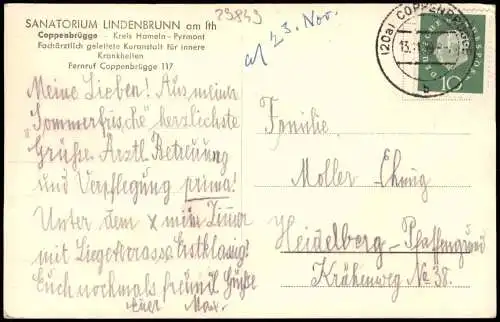 29849
SANATORIUM LINDENBRUNN am Ith
Coppenbrügge - Kreis Hameln - Pyrmont
Fachärztlich geleitete Kuranstalt für innere
Krankheiten
Fernruf Coppenbrügge 117
23. Nov.
(20a) COPPENBRÜGGE
b
DEUTSCHE BUNDESPOST
10
Meine Lieben! Aus meiner
"Sommerfrische" herzlichste
Grüße. Ärztl. Betreuung
und Verpflegung prima!
Unter dem x mein Zimmer
mit Liegeterrasse. Erstklassig!
Euch nochmals freundl. Grüße
Euer Max.
Familie
Moller
Heidelberg-Pfaffengrund
Krähenweg No 38.